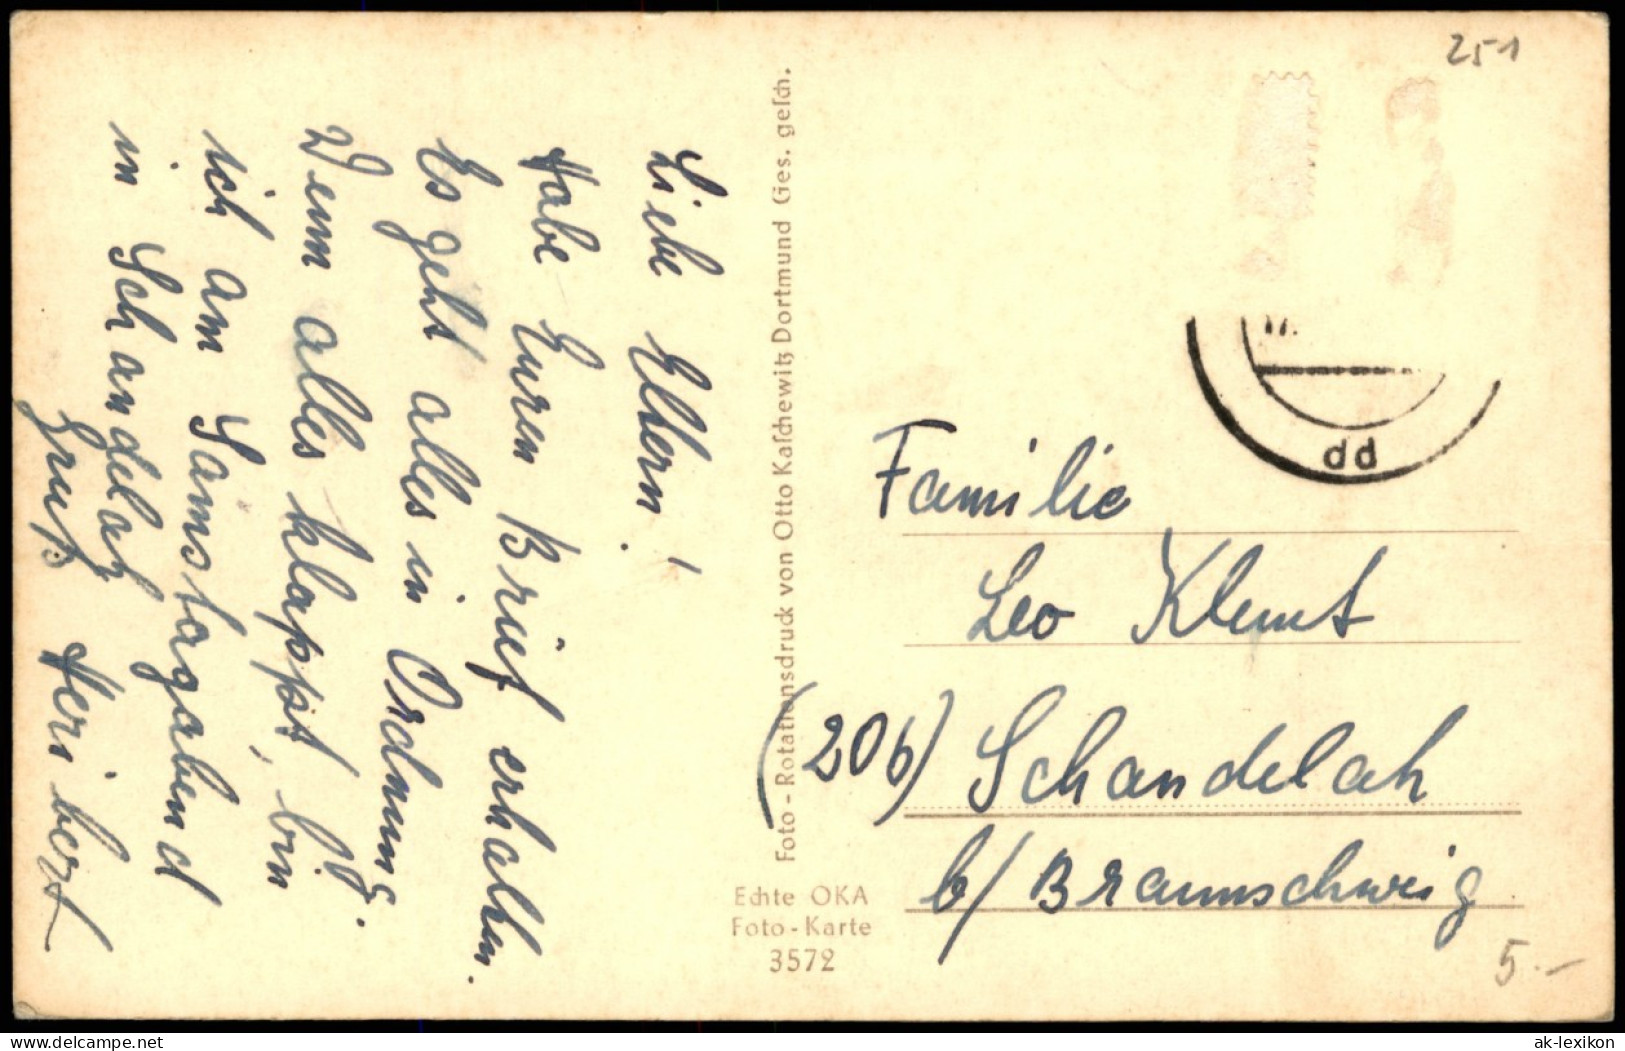 251
Liebe Eltern!
Habe Euren Brief erhalten.
Es geht alles in Ordnung.
Wenn alles klappt, bin
ich am Samstagabend
in Schandelah
Gruß Heribert
Foto-Rotationsdruck von Otto Kaſchewitz Dortmund Ges. geſch.
Echte OKA
Foto-Karte
3572
Familie
Leo Klemt
(20b) Schandelah
b/Braunschweig
5.-
akpool.de
ak-lexikon